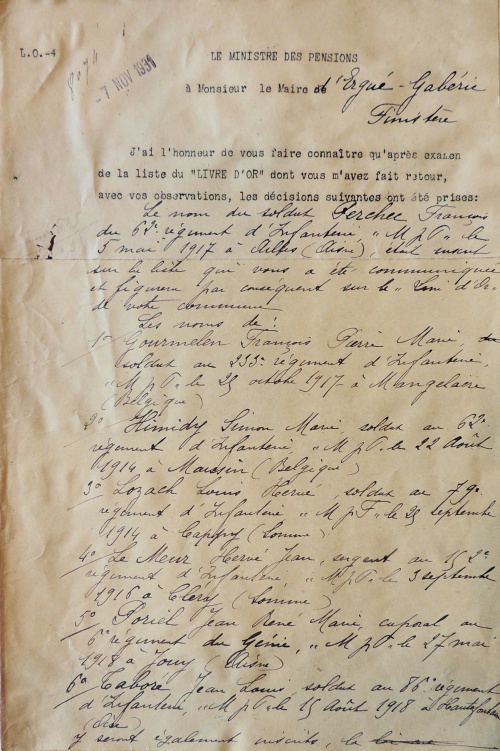 L.O.-4
8074
-7 NOV 1931
LE MINISTRE DES PENSIONS
à Monsieur le Maire d'Ergué-Gabéric
Finistère
J'ai l'honneur de vous faire connaître qu'après examen
de la liste du "LIVRE D'OR" dont vous m'avez fait retour,
avec vos observations, les décisions suivantes ont été prises:
Le nom du soldat Perchec François
du 62e régiment d'Infanterie "M.p.F." le
5 mai 1917 à (Aisne), était inscrit
sur la liste qui vous a été communiquée
et figurera par conséquent sur le "Livre d'Or"
de votre commune
Les noms de:
1° Gourmelen François Pierre Marie,
soldat au 233e régiment d'Infanterie,
"M.p.F." le 25 octobre 1917 à Mangelaere
(Belgique)
2° Himidy Simon Marie, soldat au 62e
régiment d'Infanterie "M.p.F." le 22 Août
1914 à Maissin (Belgique)
3° Lozach Louis Hervé, soldat au 79e
régiment d'Infanterie "M.p.F" le 25 septembre
1914 à Cappy (Somme)
4° Le Meur Hervé Jean, sergent au 152e
régiment d'Infanterie, "M.p.F." le 3 septembre
1916 à Cléry (Somme)
5° Poriel Jean René Marie, caporal au
6e régiment du Génie, "M.p.F." le 27 mai
1918 à Jouy (Aisne)
6° Taboré Jean Louis soldat au 86e régiment
d'Infanterie, "M.p.F." le 15 Août 1918 à Hautefontaine
(Oise)
y seront également inscrits, la